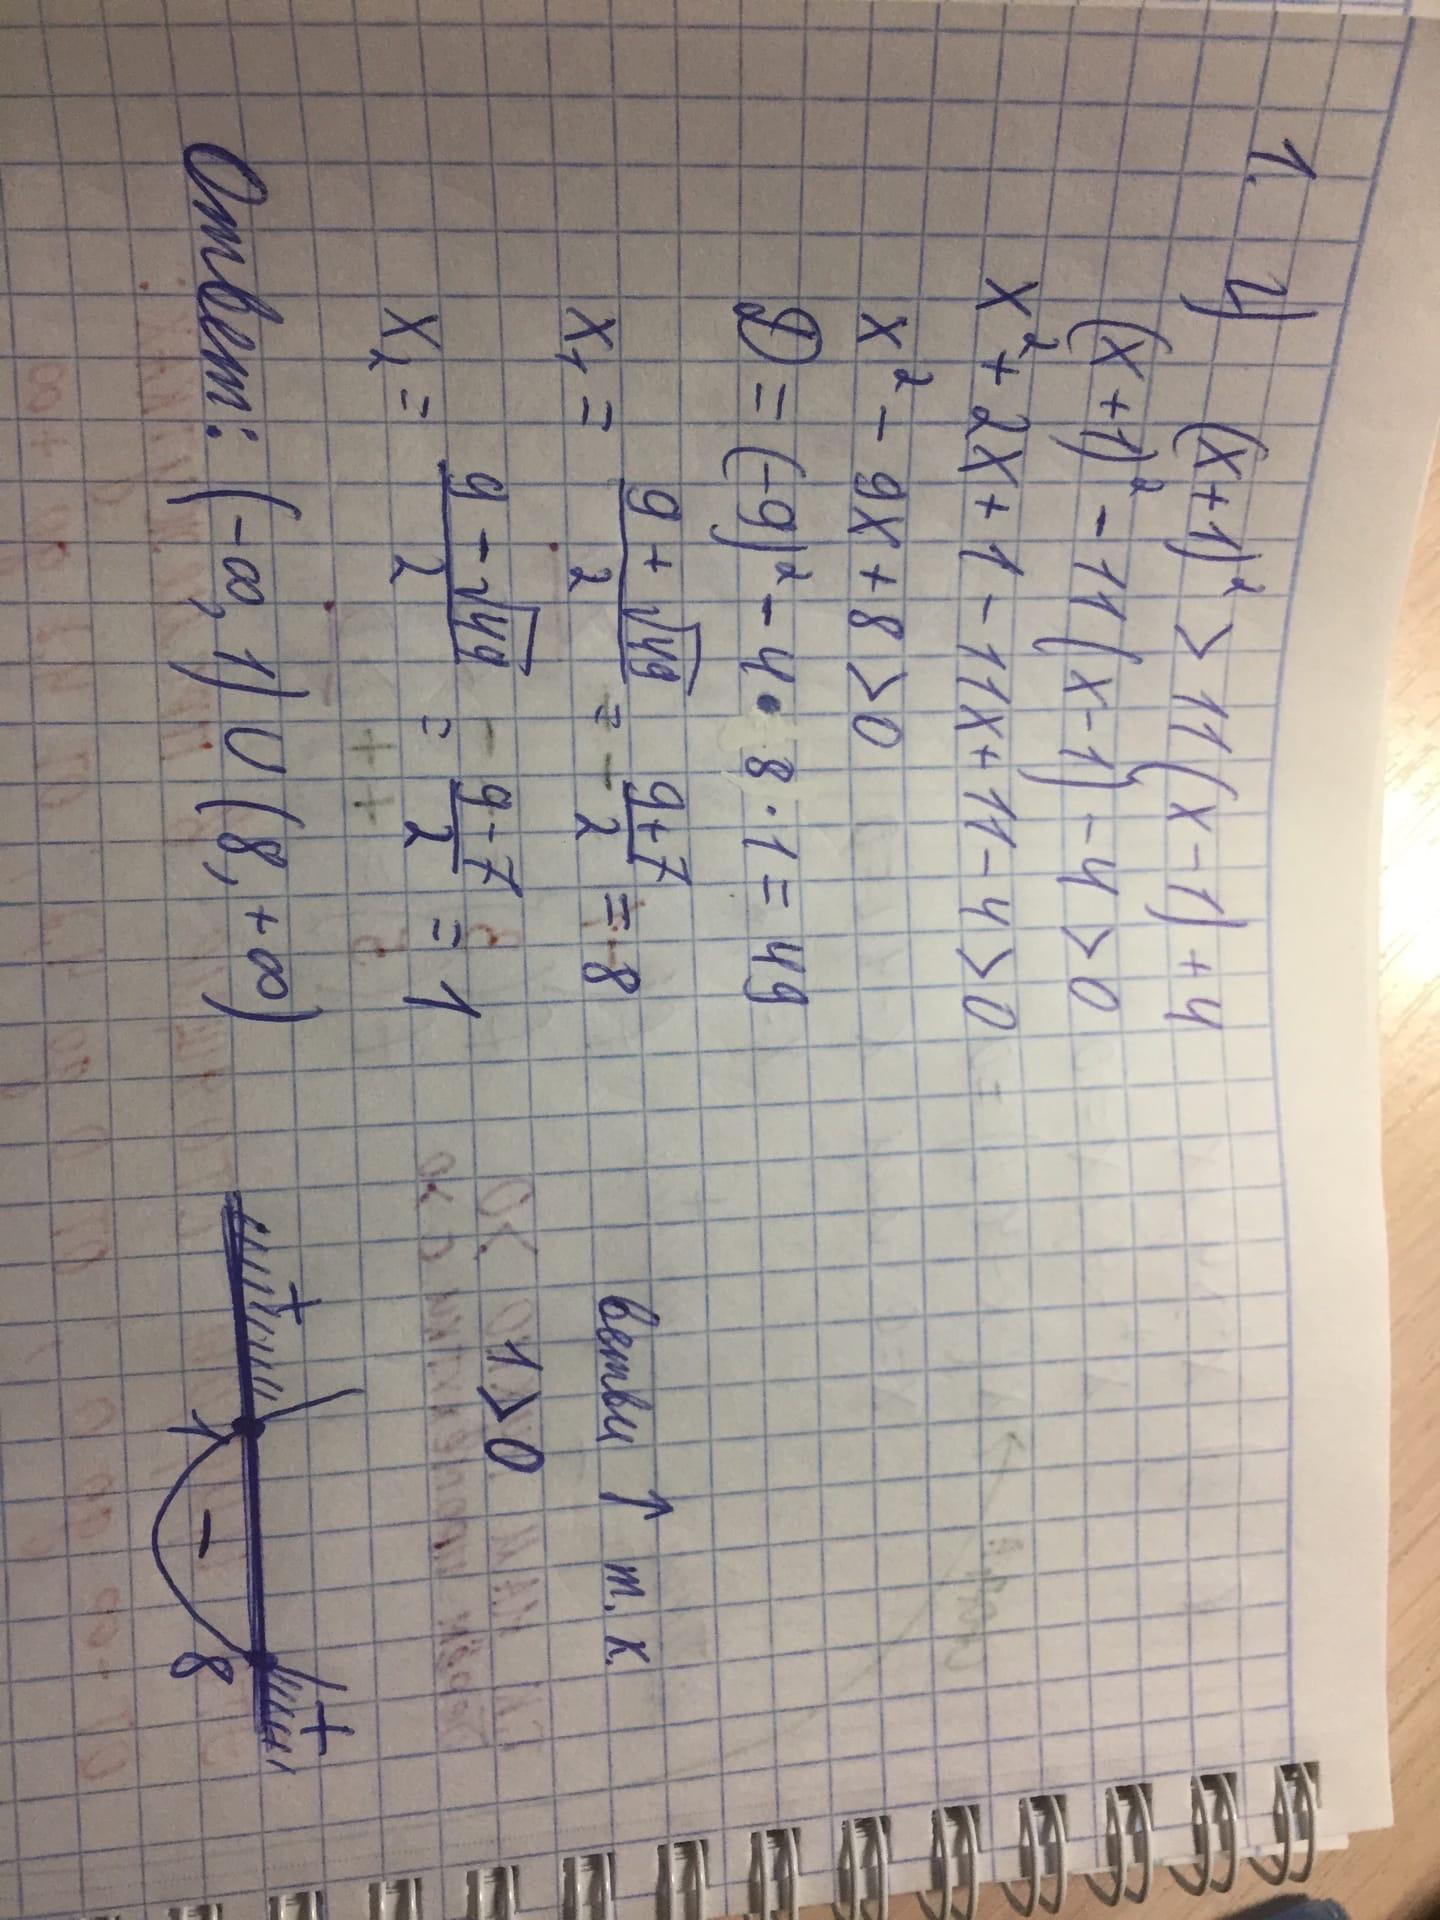 1. 4) (x+1)² > 11(x-1)+4
(x+1)² - 11(x-1) - 4 > 0
x² + 2x + 1 - 11x + 11 - 4 > 0
x² - 9x + 8 > 0
D = (-9)² - 4 · 8 · 1 = 49
x₁ = (9 + √49)/2 = (9+7)/2 = 8
x₂ = (9 - √49)/2 = (9-7)/2 = 1
Ответ: (-∞, 1) ∪ (8, +∞)
ветви ↑ т.к.
1 > 0
+ - +
1 8